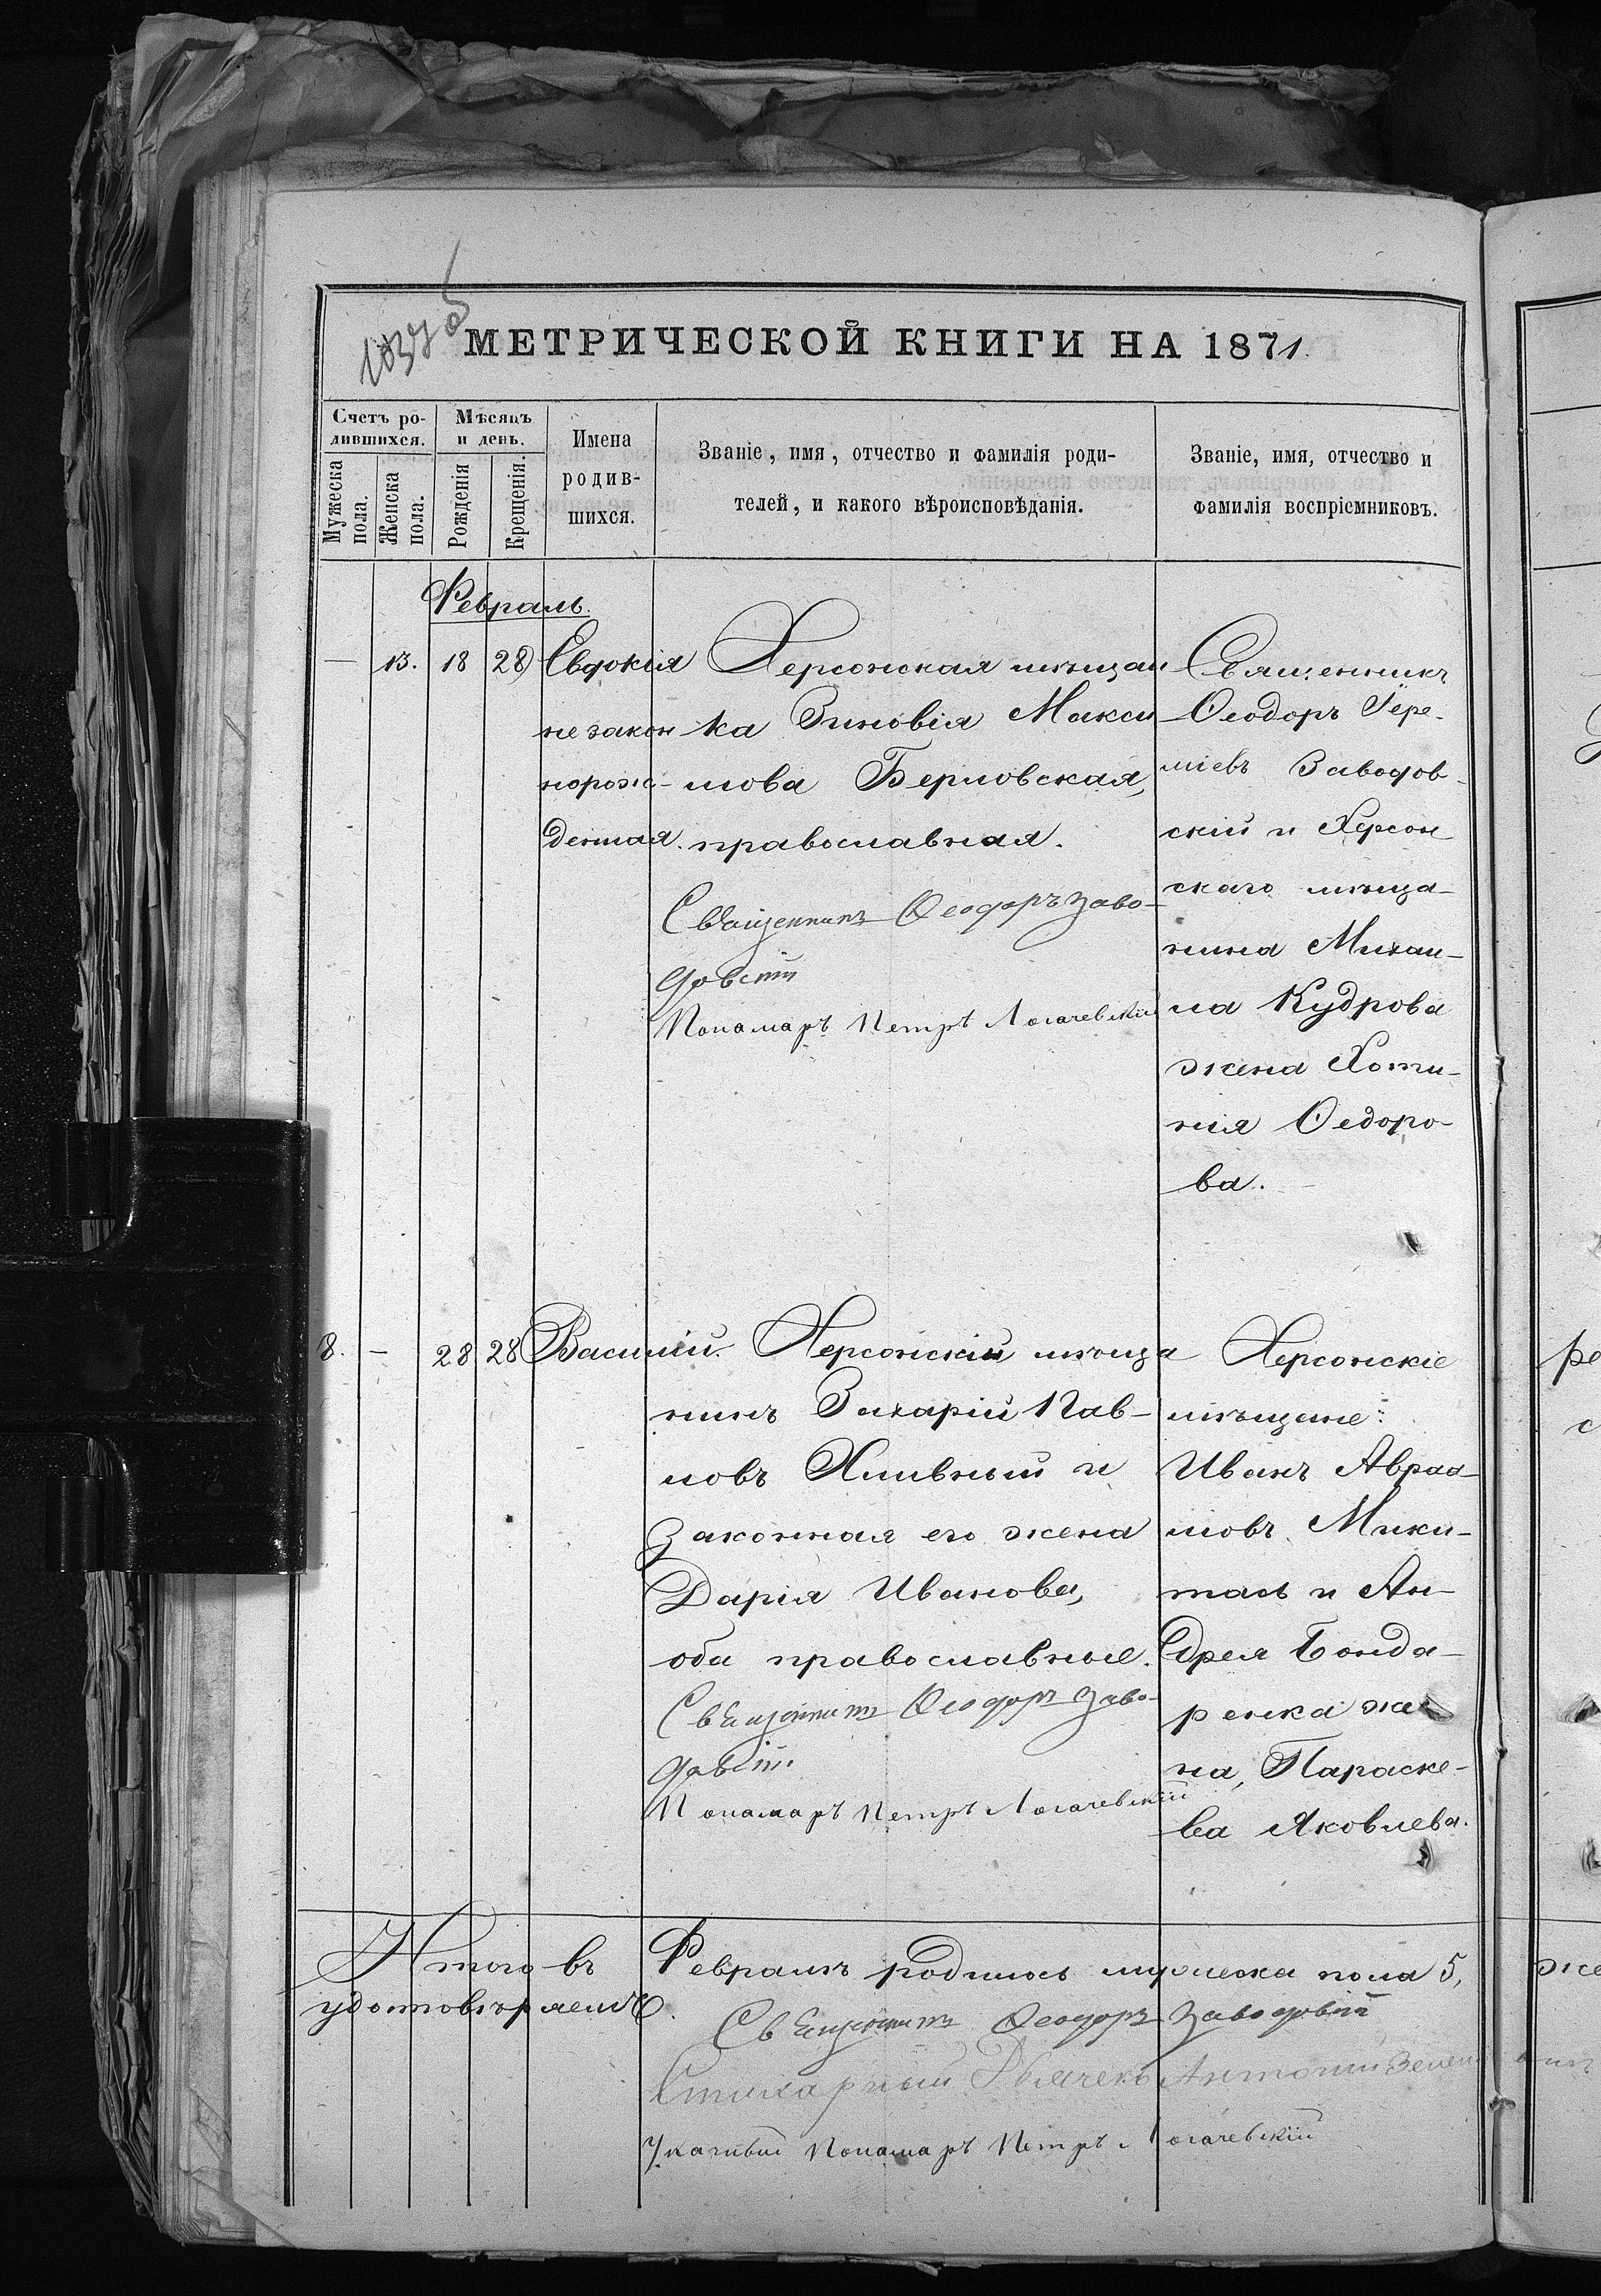 1037 об
МЕТРИЧЕСКОЙ КНИГИ НА 1871.
Счетъ ро-
дившихся.
Мужеска
пола.
Женска
пола.
Мѣсяцъ
и день.
Рожденія
Крещенія.
Имена
родив-
шихся.
Званіе, имя, отчество и фамилія роди-
телей, и какого вѣроисповѣданія.
Званіе, имя, отчество и
фамилія воспріемниковъ.
Февраль.
— 13. 18 28
Евдокія
незакон
норож-
денная.
Херсонская мѣщан
ка Зиновія Макси
мова Берловская,
православная.
Священникъ Ѳеодоръ Заво-
довскій
Пономарь Петръ Логачевскій
Священникъ
Ѳеодоръ Іере-
міевъ Заводов-
скій и Херсон
скаго мѣща-
нина Михаи-
ла Кудрова
жена Хоти-
нія Ѳедоро-
ва.
8. — 28 28
Василій.
Херсонскій мѣща
нинъ Захарій Пав-
ловъ Хливный и
законная его жена
Дарія Иванова,
оба православные.
Священникъ Ѳеодоръ Заво-
довскій
Пономарь Петръ Логачевскій
Херсонскіе
мѣщане:
Иванъ Авраа-
мовъ Мики-
тась и Ан-
дрея Бонда-
ренка же
на, Параске-
ва Яковлева.
Итого въ Февралѣ родилось мужеска пола 5,
удостовѣряемъ.
Священникъ Ѳеодоръ Заводовскій
Стихарный Дьячекъ Антоній
Указный Пономарь Петръ Логачевскій